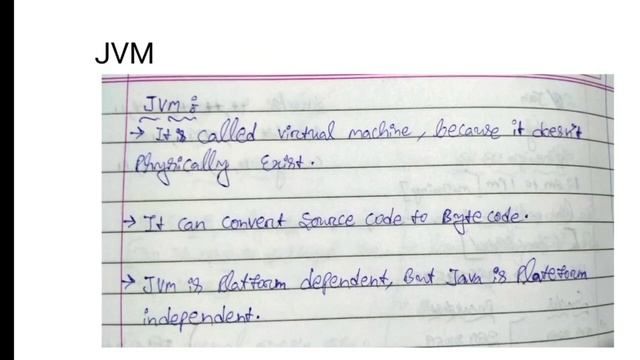 JVM
JVM :
→ It is called virtual machine, because it doesn't
Physically Exist.
→ It can convert source code to Byte code.
→ JVM is Platform dependent, But Java is Plateform
independent.